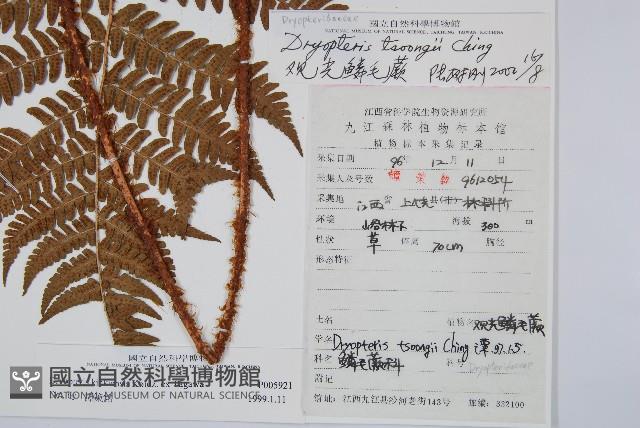 Dryopteridaceae
國立自然科學博物館
NATIONAL MUSEUM OF NATURAL SCIENCE, TAICHUNG, TAIWAN, R.O.CHINA
Dryopteris tsoongii Ching
观光鳞毛蕨 2002
江西省科学院生物资源研究所
九江森林植物标本馆
植物标本采集记录
采集日期 96年 12月 11日
采集人及号数 谭策铭 9612054
采集地 江西省 上犹县(市)
环境 山谷林下 海拔 300 m
性状 草 体高 70cm 胸径
形态特征
土名 植物名 观光鳞毛蕨
学名 Dryopteris tsoongii Ching 谭 97.1.5.
科名 鳞毛蕨科 科号 Dryopteridaceae
附记
馆址:江西九江县沙河老街143号 邮编:332100
國立自然科學博物館
NATIONAL MUSEUM OF NATURAL SCIENCE, TAICHUNG, TAIWAN, R.O.CHINA
P005921
1999.1.11
國立自然科學博物館
NATIONAL MUSEUM OF NATURAL SCIENCE